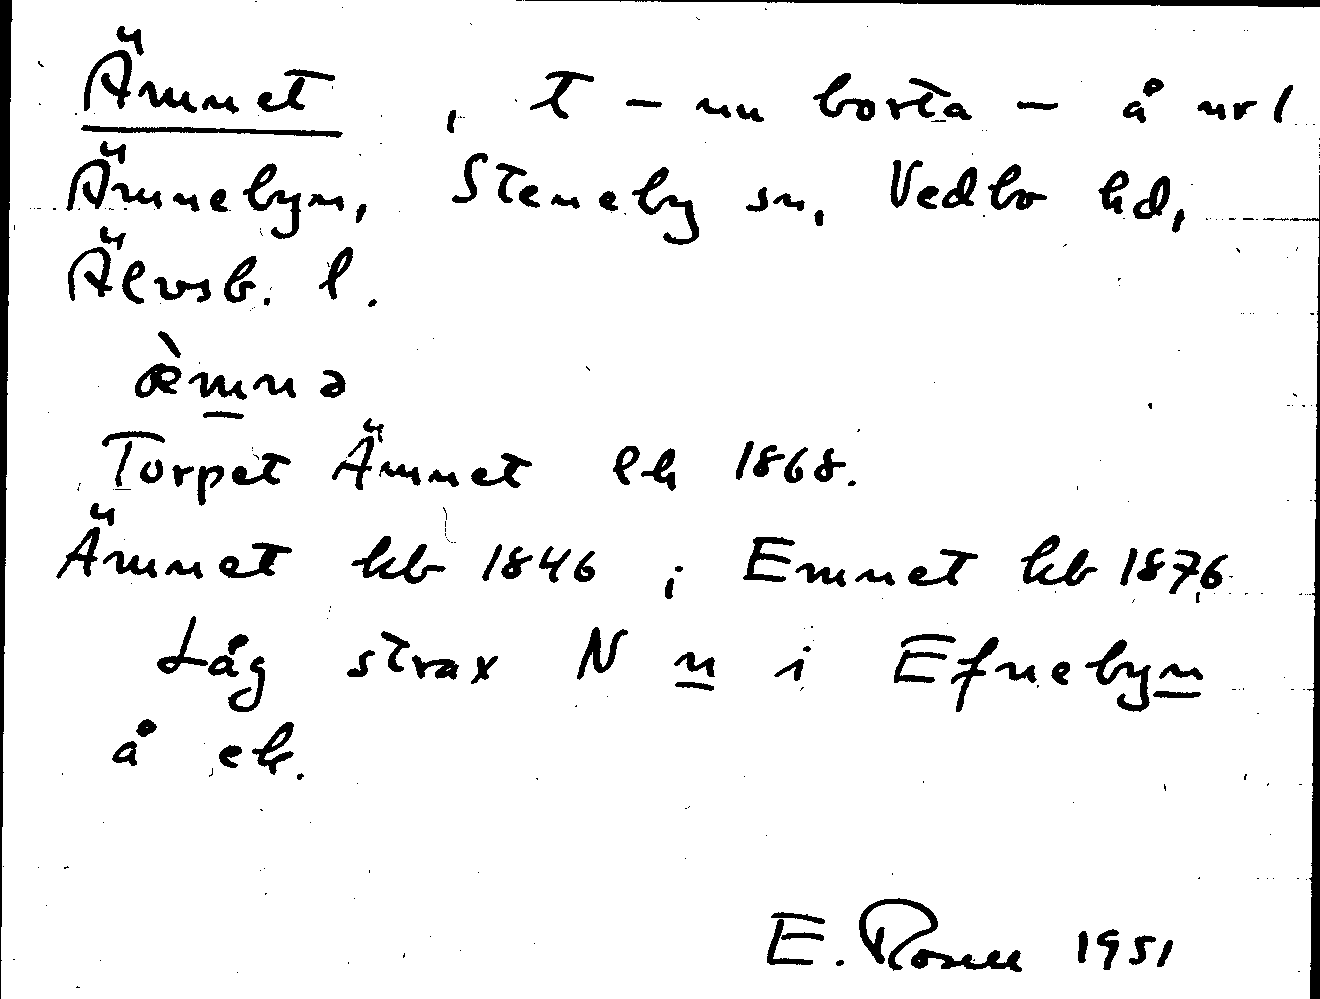 Ämnet, t – nu borta – å nr 1
Ämnebyn, Steneby sn, Vedbo hd,
Älvsb. l.
æ̀mnə
Torpet Ämnet lh 1868.
Ämnet kb 1846; Emnet kb 1876
Låg strax N n i Efnebyn
å ek.
E. Rosell 1951